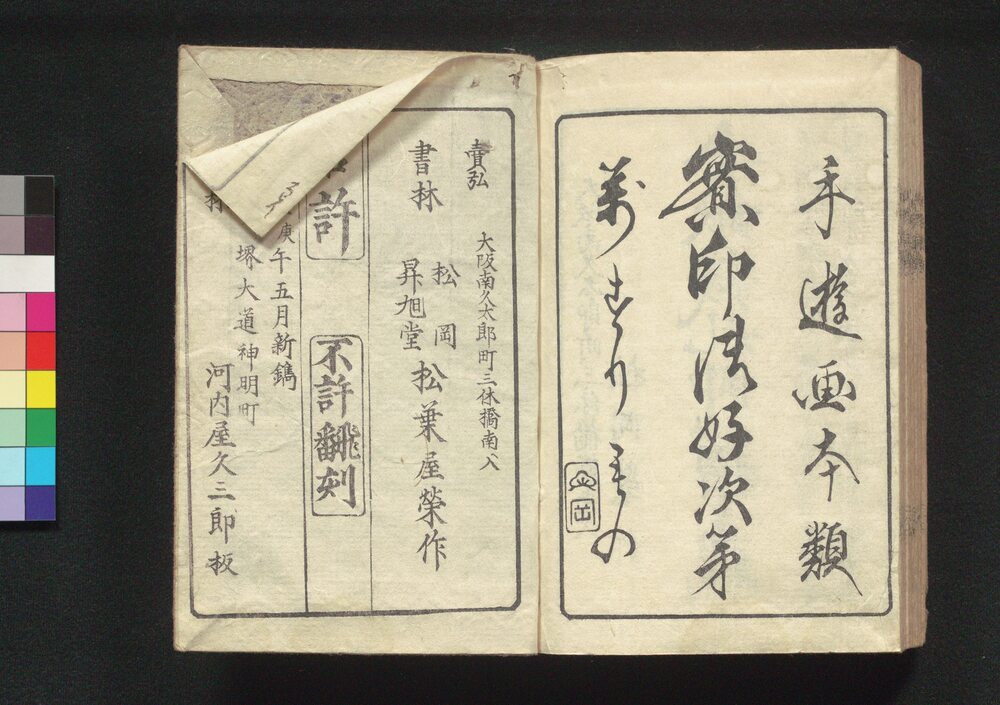 手遊画本類
實印御好次第
萬すりもの
松岡
賣弘
大阪南久太郎町三休橋南入
書林
松岡
昇旭堂
松葉屋榮作
許
不許飜刻
庚午五月新鐫
堺大道神明町
河内屋久三郎板